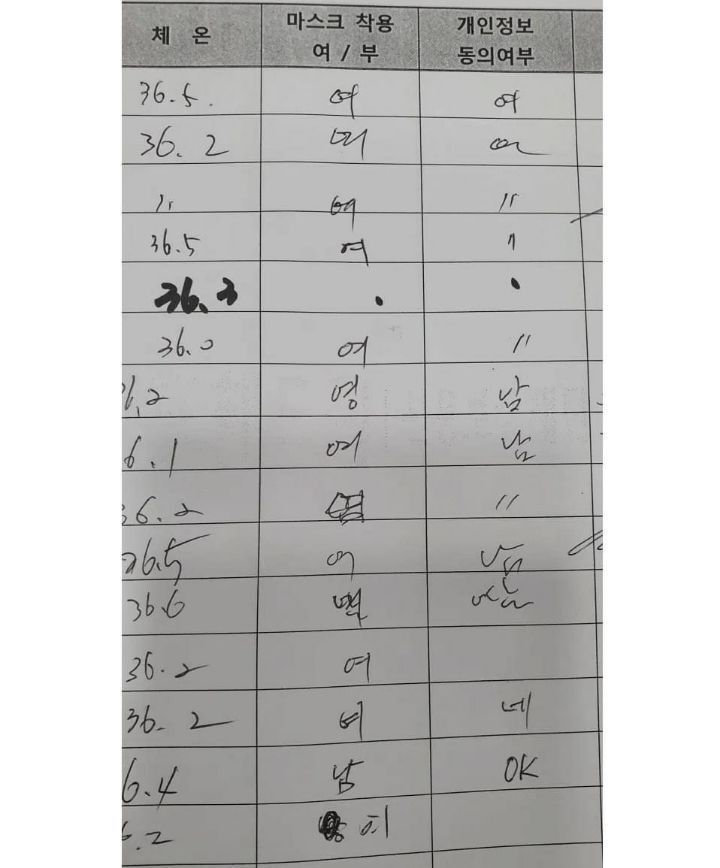 체 온 마스크 착용 개인정보
여 / 부 동의여부
36.5. 여 여
36. 2 여 여
〃 여 〃
36.5 여 〃
36.3 . .
36.0 여 〃
6.2 영 남
6.1 여 남
36.2 〃
36.5 여 남
36.6
36.2 여
36. 2 여 네
6.4 남 OK
6.2 여